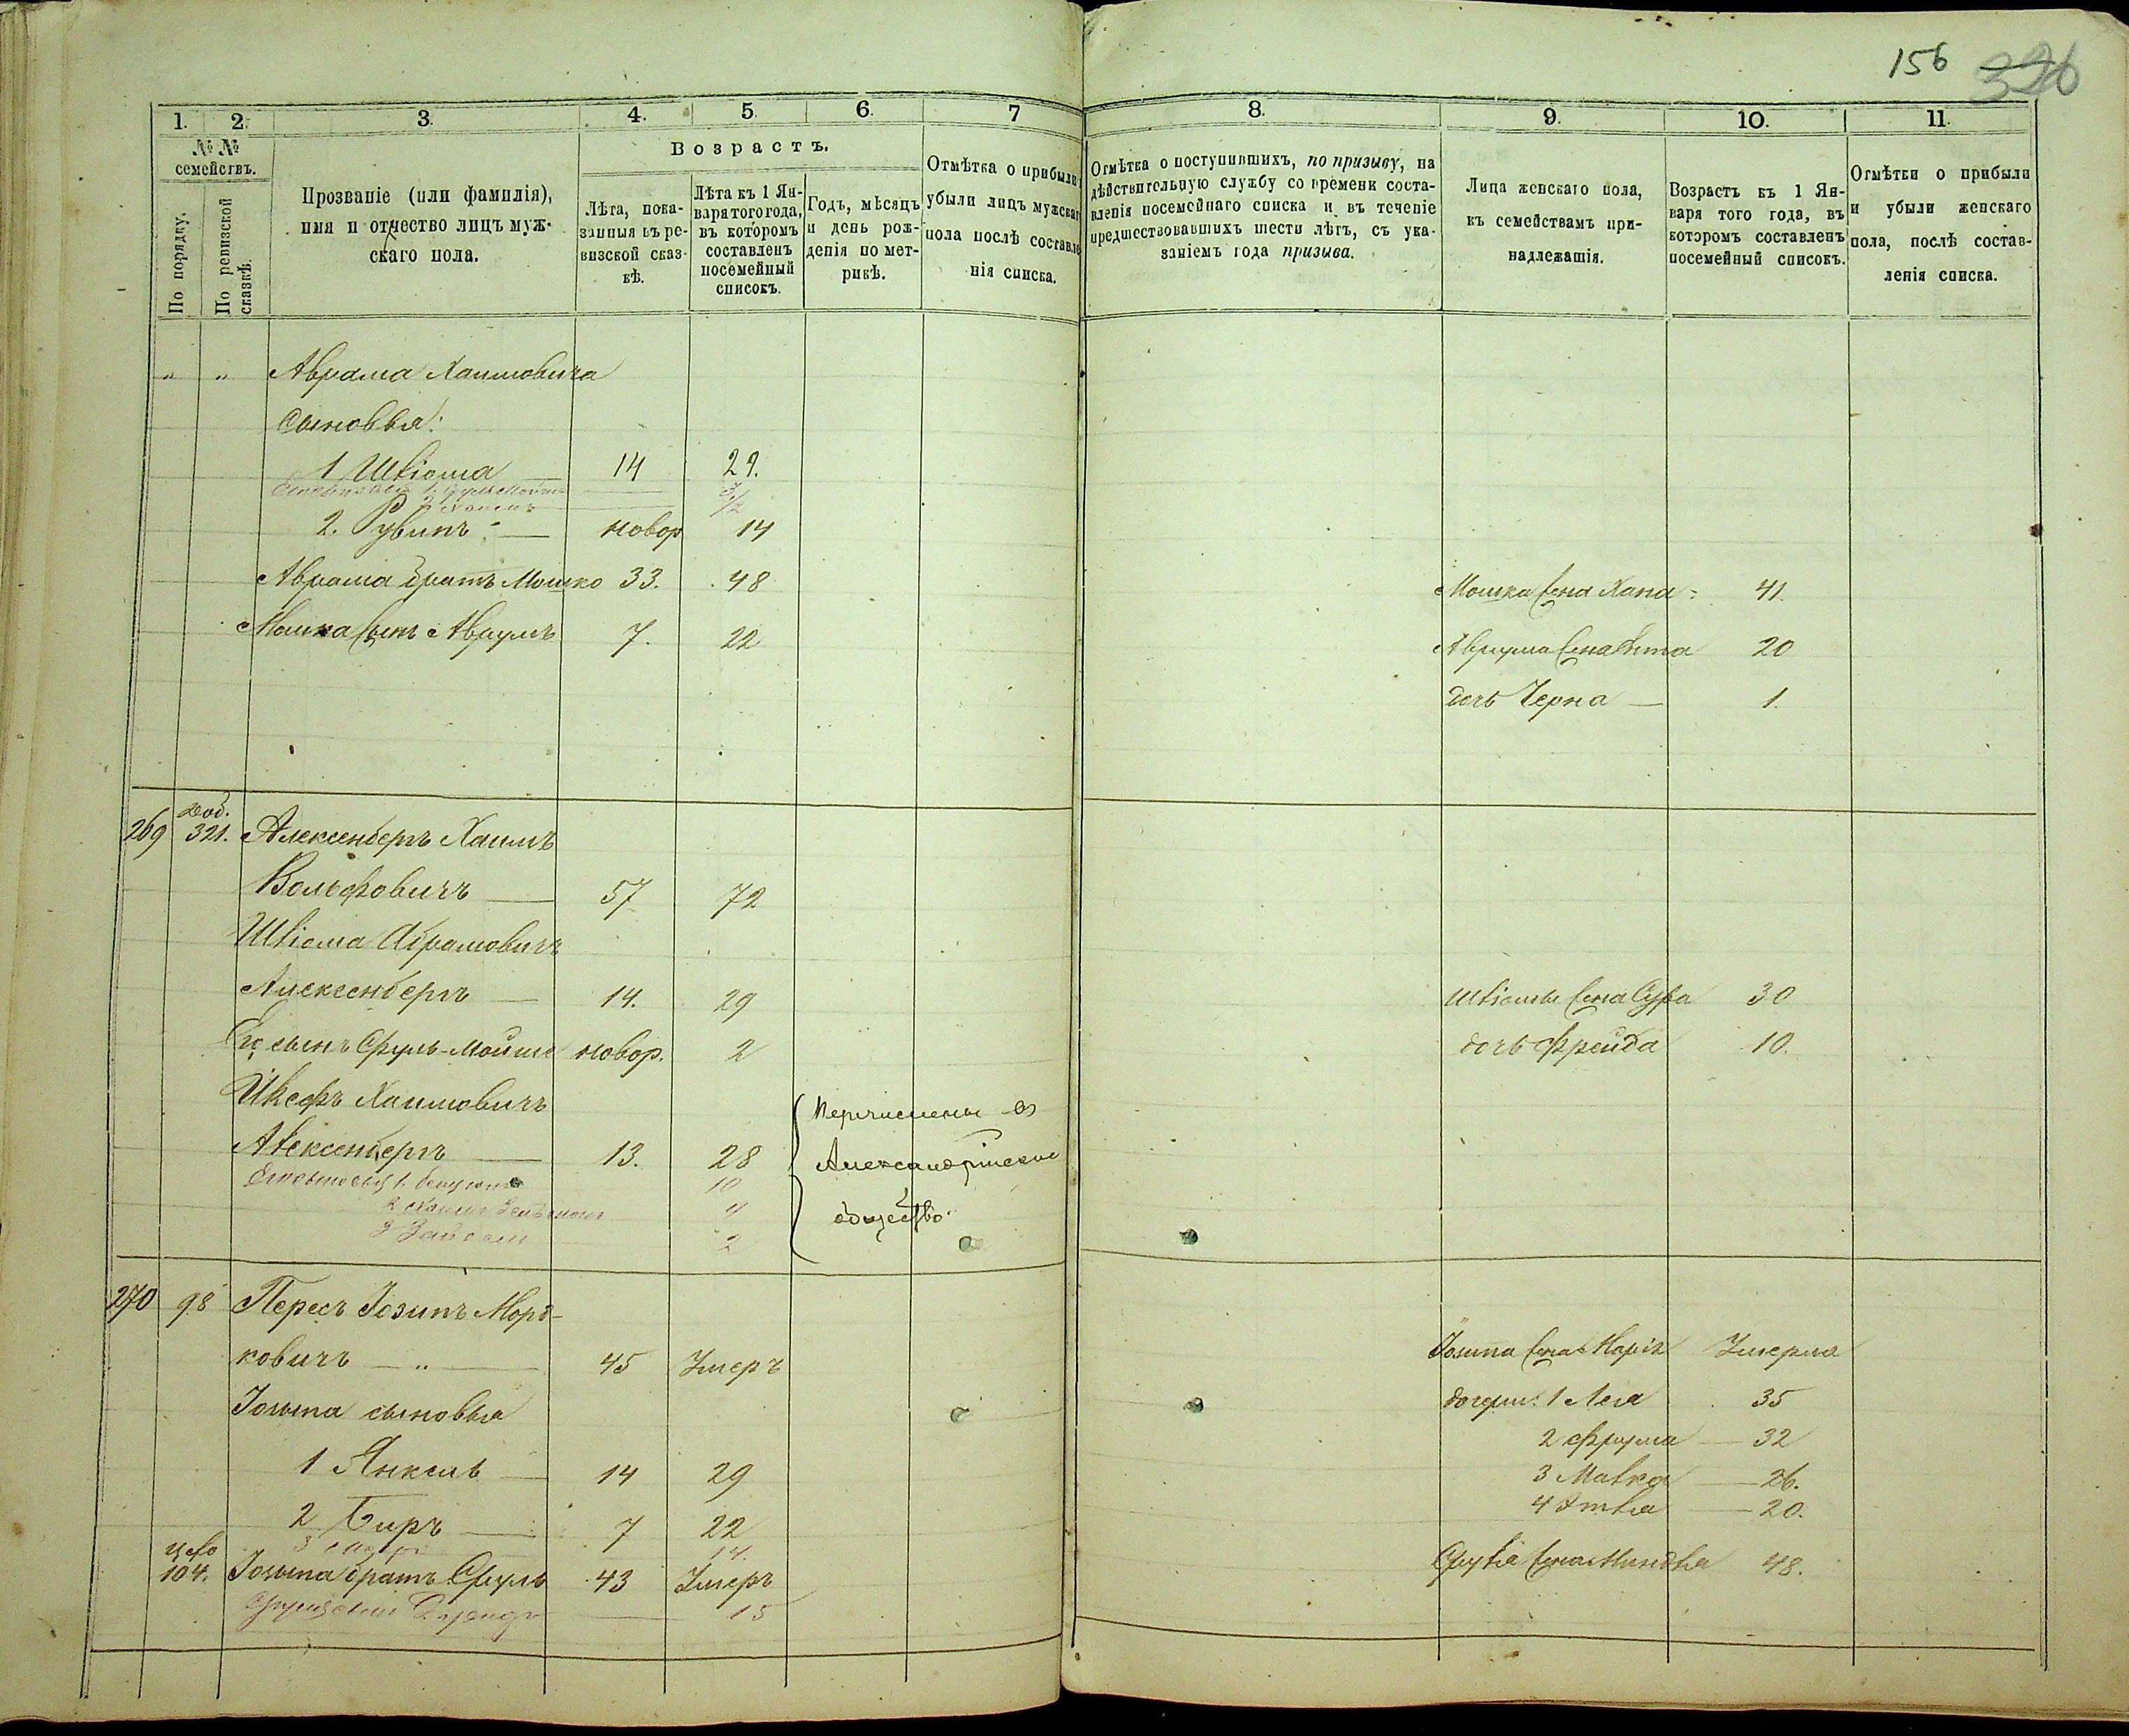 156 326
1. 2. 3. 4. 5. 6. 7 8. 9. 10. 11.
№№ семействъ.
По порядку.
По ревизской сказкѣ.
Прозваніе (или фамилія),
имя и отчество лицъ муж-
скаго пола.
Возрастъ.
Лѣта, пока-
занныя въ ре-
визской сказ-
кѣ.
Лѣта къ 1 Ян-
варя того года,
въ которомъ
составленъ
посемейный
списокъ.
Годъ, мѣсяцъ
и день рож-
денія по мет-
рикѣ.
Отмѣтка о прибыли
убыли лицъ мужскаго
пола послѣ составле
нія списка.
Отмѣтка о поступившихъ, по призыву, на
дѣйствительную службу со времени соста-
вленія посемейнаго списка и въ теченіе
предшествовавшихъ шести лѣтъ, съ ука-
заніемъ года призыва.
Лица женскаго пола,
къ семействамъ при-
надлежащія.
Возрастъ къ 1 Ян-
варя того года, въ
которомъ составленъ
посемейный списокъ.
Отмѣтки о прибыли
и убыли женскаго
пола, послѣ состав-
ленія списка.
" " Аврама Хаимовича
Сыновья:
1 Шліома 14 29.
2. Рувинъ новор 14
Аврама братъ Мошко 33. 48 Мошка жена Хана 41.
Мошка сынъ Аврумъ 7. 22 Аврума жена 20
дочь Черна 1.
269 321. Алексенберъ Хаимъ
Вольфовичъ 57 72
Шліома Абрамовичъ
Алексенбергъ 14. 29 Шліомы жена Сура 30
Его сынъ Сруль-Мойше новор. 2 дочь Фрейда 10.
Хаимовичъ
Алексенбергъ 13. 28
10
4
2
Перечислены въ
Александрійское
общество.
270 98 Пересъ Іозипъ Морд-
ковичъ — " — 45 Умеръ Іозипа жена Марія Умерла
Іозипа сыновья дочери: 1 Лея 35
2 Фрума 32
1 Янкель 14 29 3 Малка 26.
4 20.
2 Беръ 7 22
14.
104. Іозипа братъ Сруль 43 Умеръ Сруля жена Миндля 48.
15